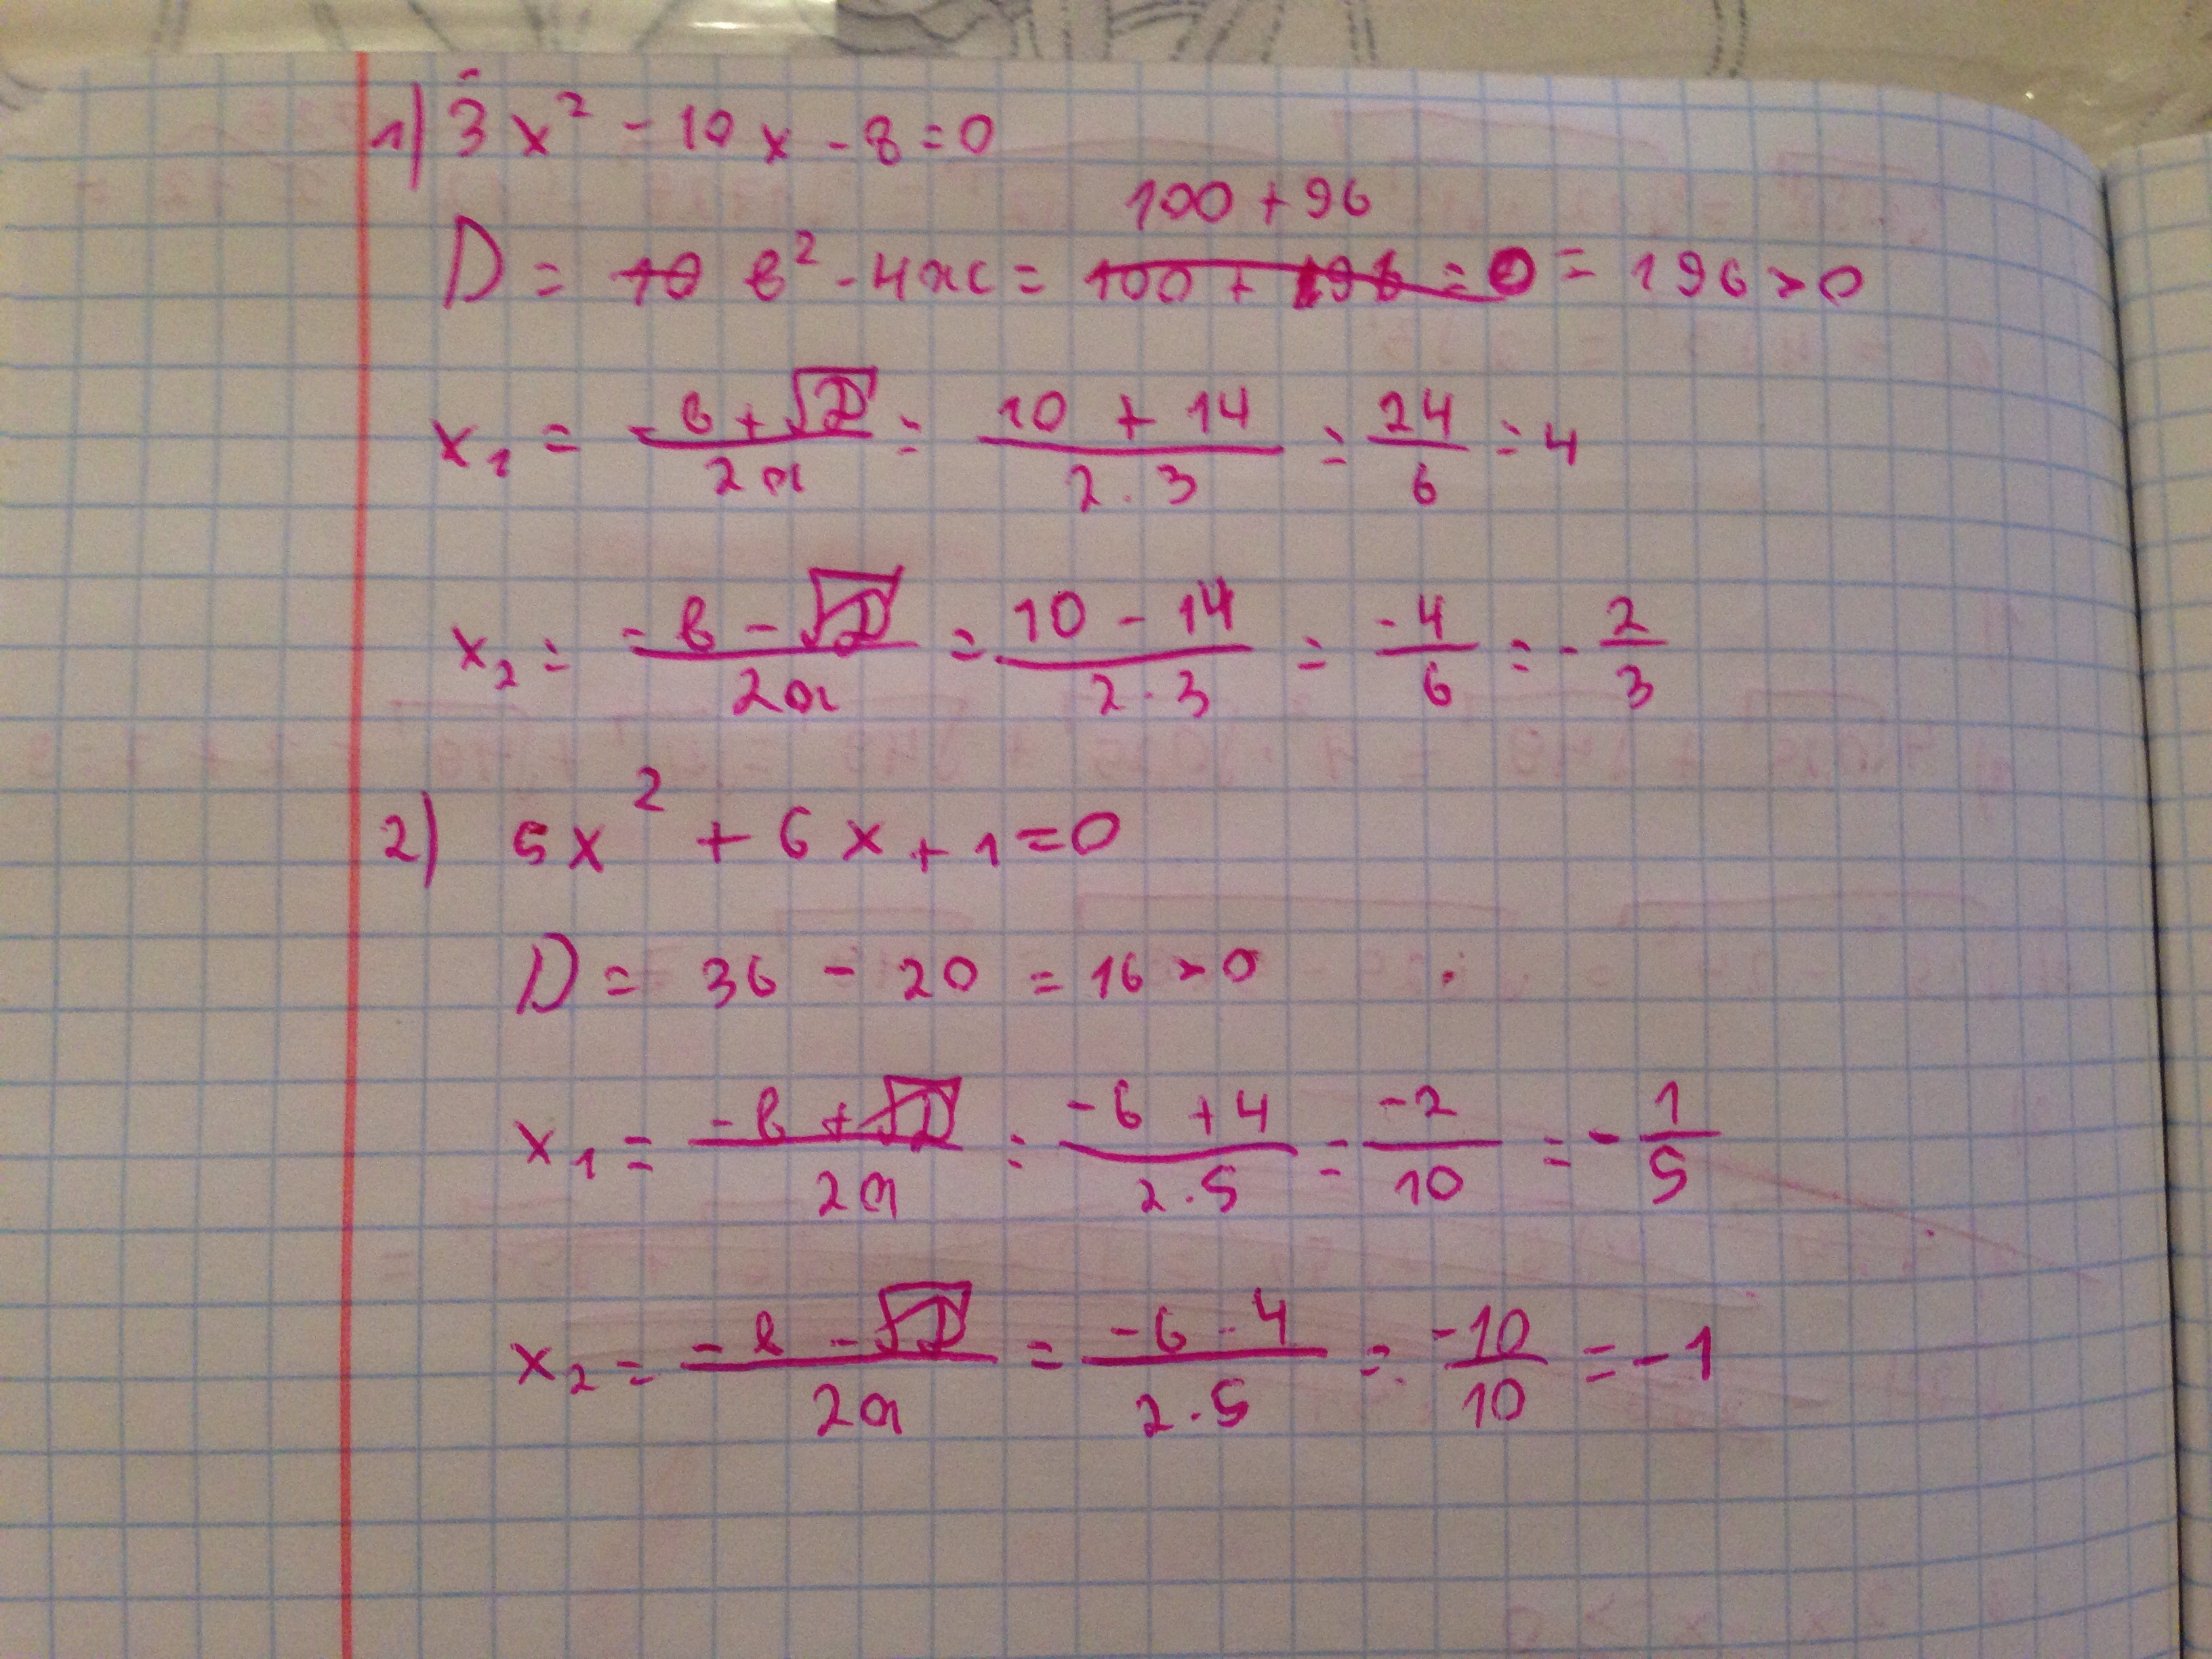 1) 3x² - 10x - 8 = 0
100 + 96
D = 10 в² - 4ac = 100 + 196 = 0 = 196 > 0
x₁ = (-в + √D)/(2a) = (10 + 14)/(2 · 3) = 24/6 = 4
x₂ = (-в - √D)/(2a) = (10 - 14)/(2 · 3) = -4/6 = -2/3
2) 5x² + 6x + 1 = 0
D = 36 - 20 = 16 > 0
x₁ = (-в + √D)/(2a) = (-6 + 4)/(2 · 5) = -2/10 = -1/5
x₂ = (-в - √D)/(2a) = (-6 - 4)/(2 · 5) = -10/10 = -1